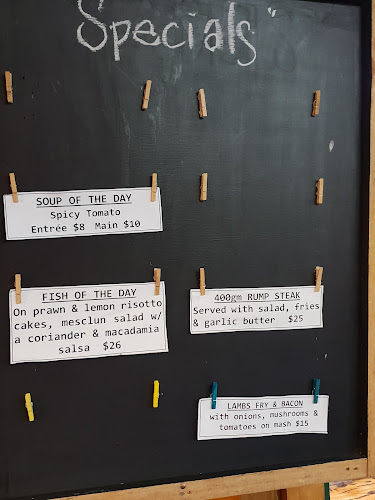 Specials"
SOUP OF THE DAY
Spicy Tomato
Entrée $8 Main $10
FISH OF THE DAY
On prawn & lemon risotto
cakes, mesclun salad w/
a coriander & macadamia
salsa $26
400gm RUMP STEAK
Served with salad, fries
& garlic butter $25
LAMBS FRY & BACON
with onions, mushrooms &
tomatoes on mash $15